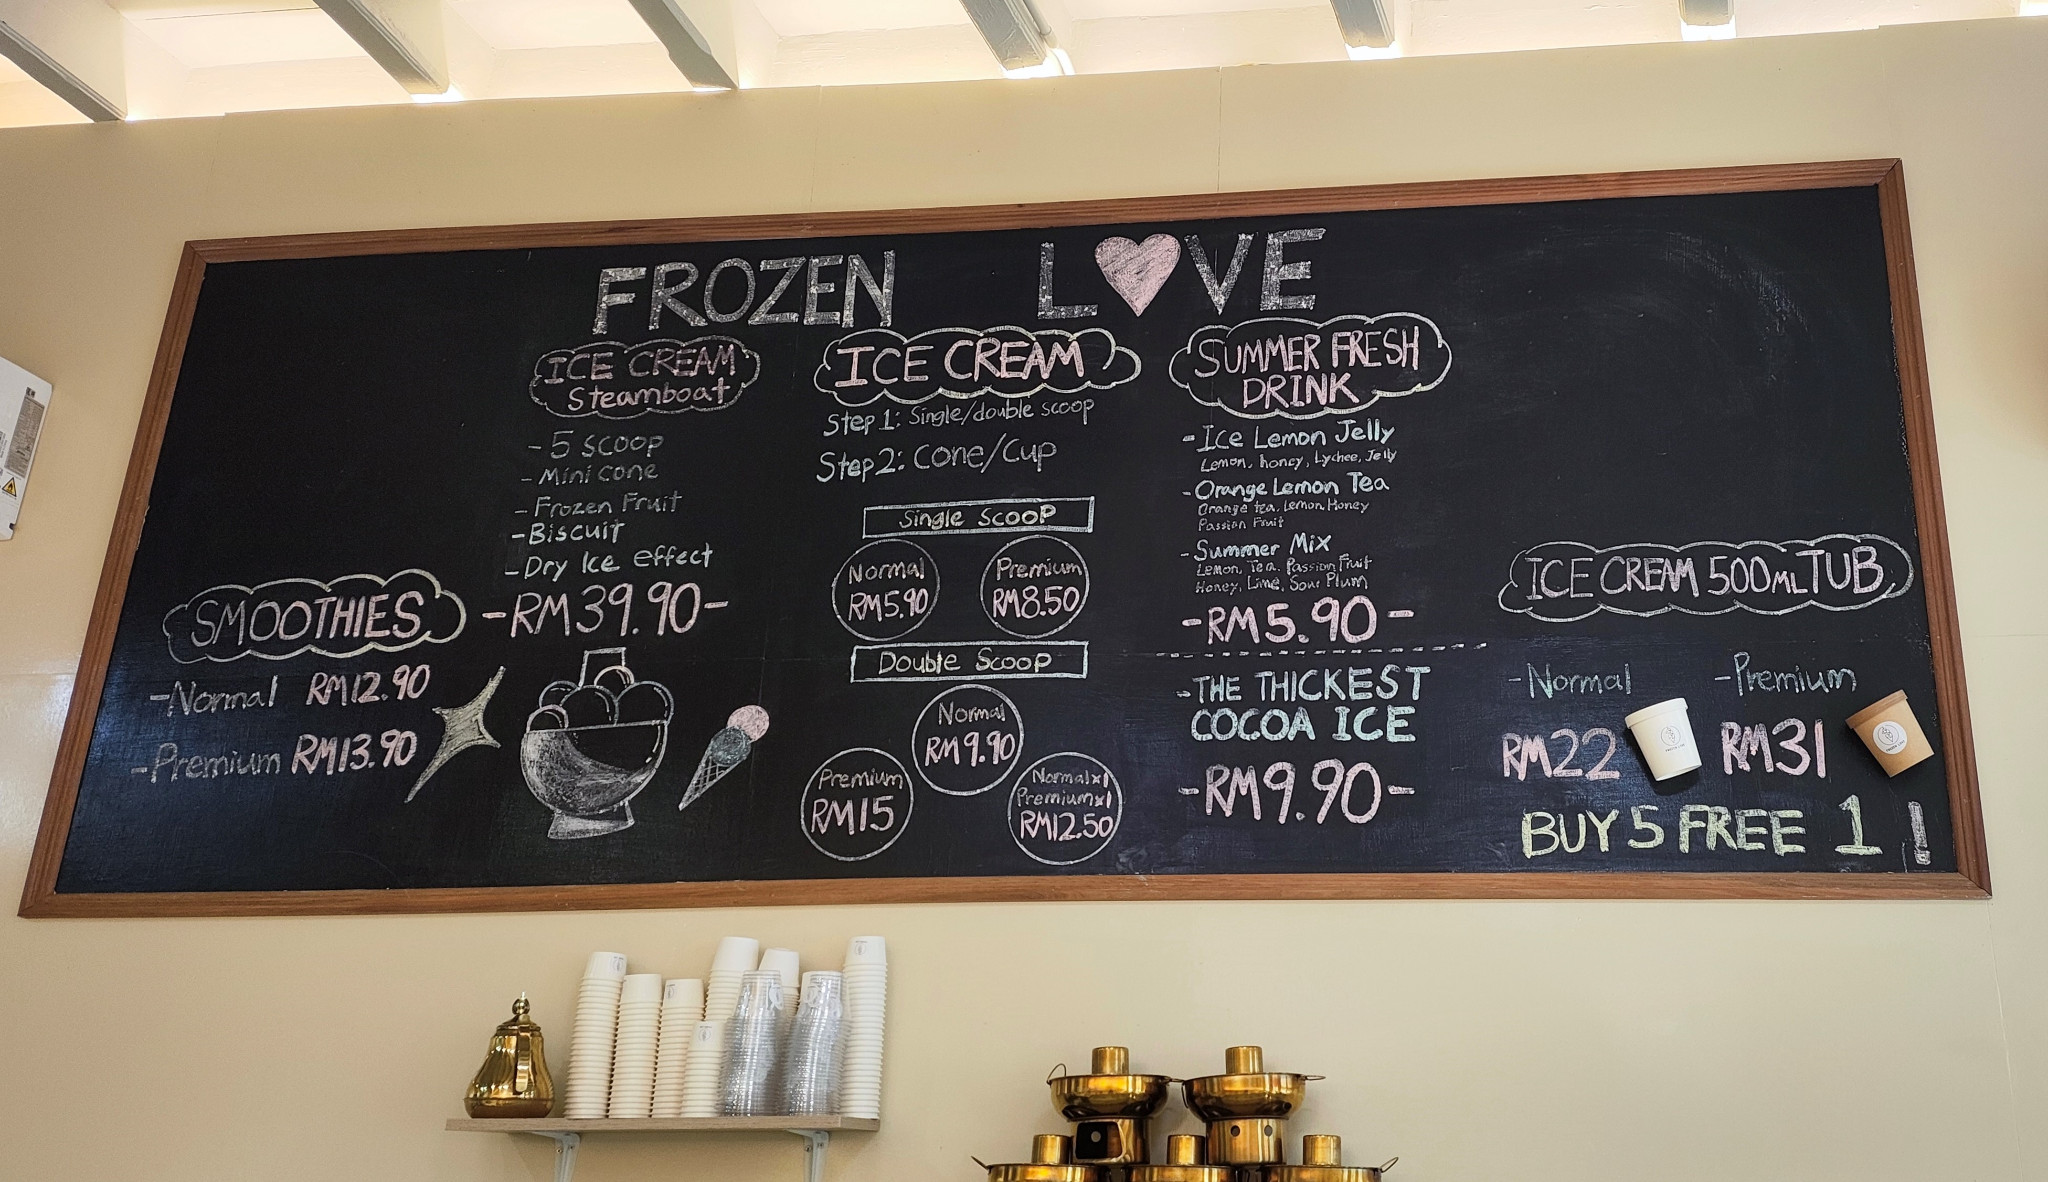 FROZEN LOVE
SMOOTHIES
-Normal RM12.90
-Premium RM13.90
ICE CREAM
Steamboat
- 5 scoop
- Mini cone
- Frozen Fruit
- Biscuit
- Dry Ice effect
-RM39.90-
ICE CREAM
Step 1: Single/double scoop
Step 2: Cone/Cup
Single Scoop
Normal
RM5.90
Premium
RM8.50
Double Scoop
Normal
RM9.90
Premium
RM15
Normalx1
Premiumx1
RM12.50
SUMMER FRESH
DRINK
- Ice Lemon Jelly
Lemon, honey, Lychee, Jelly
- Orange Lemon Tea
Orange tea, Lemon, Honey
Passion Fruit
- Summer Mix
Lemon, Tea, Passion Fruit
Honey, Lime, Sour Plum
-RM5.90-
-THE THICKEST
COCOA ICE
-RM9.90-
ICE CREAM 500ML TUB
-Normal
RM22
-Premium
RM31
BUY 5 FREE 1 !